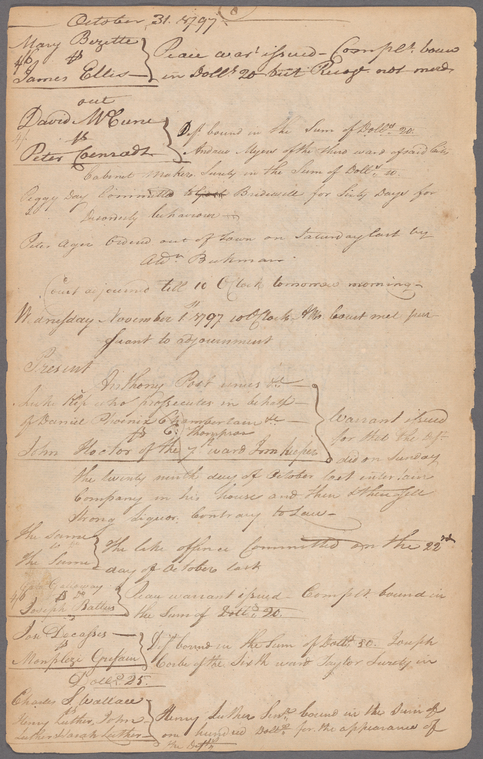 October 31. 1797.
Mary Bezette
vs
James Ellis
Peace war.t issued — Compl.t bound
in Doll.s 20 but Recog.e not
out
David McCune
vs
Peter Conradt
Df.t bound in the Sum of Doll.s 20.
Andrew Myers of the third ward of said City
Cabinet Maker Surety in the Sum of Doll.s
Peggy Day Committed to Bridewell for Sixty Days for
Disorderly behaviour
Peter Ordered out of Town on Saturday last by
Ald.n Beekman
Court adjourned till 10 OClock tomorrow morning —
Wednesday November 1st 1797 10 OClock AM Court met pur
suant to adjournment
Present
Anthony Post
who prosecutes in behalf
of Daniel Phoenix Chamberlain &c
vs
John Hector of the 7th ward Innkeeper
Warrant issued
for that the Df.t
did on Sunday
the twenty ninth day of October last entertain
Company in his house and then & there Sell
Strong Liquor Contrary to Law —
The Same
vs
The Same
The like offence Committed on the 22nd
day of October last
vs
Joseph
Peace warrant issued Compl.t bound in
the Sum of Doll.s 20.
vs
Df.t bound in the Sum of Doll.s 50. Joseph
of the Sixth ward Taylor Surety in
Doll.s 25
Charles S. Wallace
vs
Henry Luther, John
Luther, Luther
Henry Luther Sen.r bound in the Sum of
one hundred Doll.s for the appearance of
the Df.ts